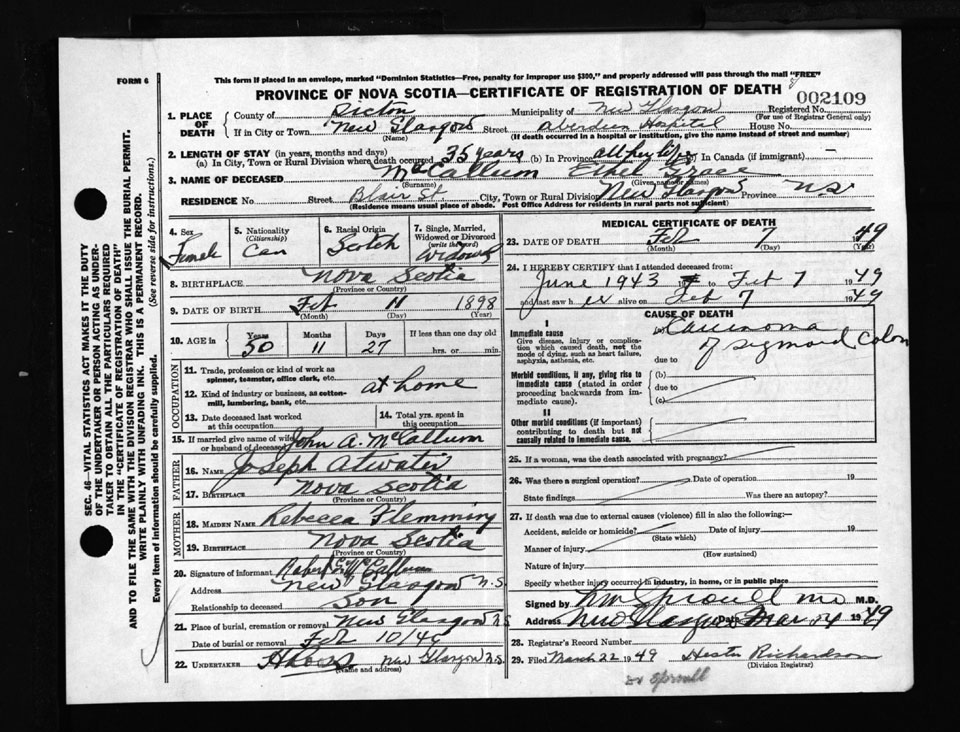 FORM 6
This form if placed in an envelope, marked "Dominion Statistics—Free, penalty for improper use $300," and properly addressed will pass through the mail "FREE"
PROVINCE OF NOVA SCOTIA—CERTIFICATE OF REGISTRATION OF DEATH
002109
1. PLACE OF DEATH
County of Pictou Municipality of New Glasgow Registered No.
(For use of Registrar General only)
If in City or Town New Glasgow Street Aberdeen Hospital House No.
(Name) (If death occurred in a hospital or institution, give the name instead of street and number)
2. LENGTH OF STAY (in years, months and days)
(a) In City, Town or Rural Division where death occurred 35 years (b) In Province all her life (c) In Canada (if immigrant) —
3. NAME OF DECEASED McCallum Ethel Grace
(Surname) (Given name or names)
RESIDENCE No. Street Blair St. City, Town or Rural Division New Glasgow Province N.S.
(Residence means usual place of abode. Post Office Address for residents in rural parts not sufficient)
4. Sex Female
5. Nationality (Citizenship) Can
6. Racial Origin Scotch
7. Single, Married, Widowed or Divorced (write the word) Widowed
8. BIRTHPLACE Nova Scotia
(Province or Country)
9. DATE OF BIRTH Feb 11 1898
(Month) (Day) (Year)
10. AGE in Years 50 Months 11 Days 27 If less than one day old hrs. or min.
OCCUPATION
11. Trade, profession or kind of work as spinner, teamster, office clerk, etc.
12. Kind of industry or business, as cotton-mill, lumbering, bank, etc. at home
13. Date deceased last worked at this occupation
14. Total yrs. spent in this occupation
15. If married give name of wife or husband of deceased John A. McCallum
FATHER
16. NAME Joseph Atwater
17. BIRTHPLACE Nova Scotia
(Province or Country)
MOTHER
18. MAIDEN NAME Rebecca Flemming
19. BIRTHPLACE Nova Scotia
(Province or Country)
20. Signature of informant Robert McCallum
Address New Glasgow N.S.
Relationship to deceased Son
21. Place of burial, cremation or removal New Glasgow N.S.
Date of burial or removal Feb 10/49
22. UNDERTAKER New Glasgow N.S.
(Name and address)
MEDICAL CERTIFICATE OF DEATH
23. DATE OF DEATH Feb 7 1949
(Month) (Day) (Year)
24. I HEREBY CERTIFY that I attended deceased from:
June 1943 to Feb 7 1949
and last saw h er alive on Feb 7 1949
CAUSE OF DEATH
I
Immediate cause
Give disease, injury or complication which caused death, not the mode of dying, such as heart failure, asphyxia, asthenia, etc.
(a) Carcinoma of sigmoid colon
due to
Morbid conditions, if any, giving rise to immediate cause (stated in order proceeding backwards from immediate cause).
(b)
due to
(c)
II
Other morbid conditions (if important) contributing to death but not causally related to immediate cause.
25. If a woman, was the death associated with pregnancy?
26. Was there a surgical operation? Date of operation 19
State findings Was there an autopsy?
27. If death was due to external causes (violence) fill in also the following:—
Accident, suicide or homicide? Date of injury 19
(State which)
Manner of injury
(How sustained)
Nature of injury
Specify whether injury occurred in industry, in home, or in public place
Signed by Sproull MD M.D.
Address New Glasgow Date Mar 14 1949
28. Registrar's Record Number
29. Filed March 22 1949 Hester Richardson
(Division Registrar)
Dr Sproull
SEC. 46—VITAL STATISTICS ACT MAKES IT THE DUTY
OF THE UNDERTAKER OR PERSON ACTING AS UNDER-
TAKER TO OBTAIN ALL THE PARTICULARS REQUIRED
IN THE "CERTIFICATE OF REGISTRATION OF DEATH"
AND TO FILE THE SAME WITH THE DIVISION REGISTRAR WHO SHALL ISSUE THE BURIAL PERMIT.
WRITE PLAINLY WITH UNFADING INK. THIS IS A PERMANENT RECORD.
Every item of information should be carefully supplied. (See reverse side for instructions.)